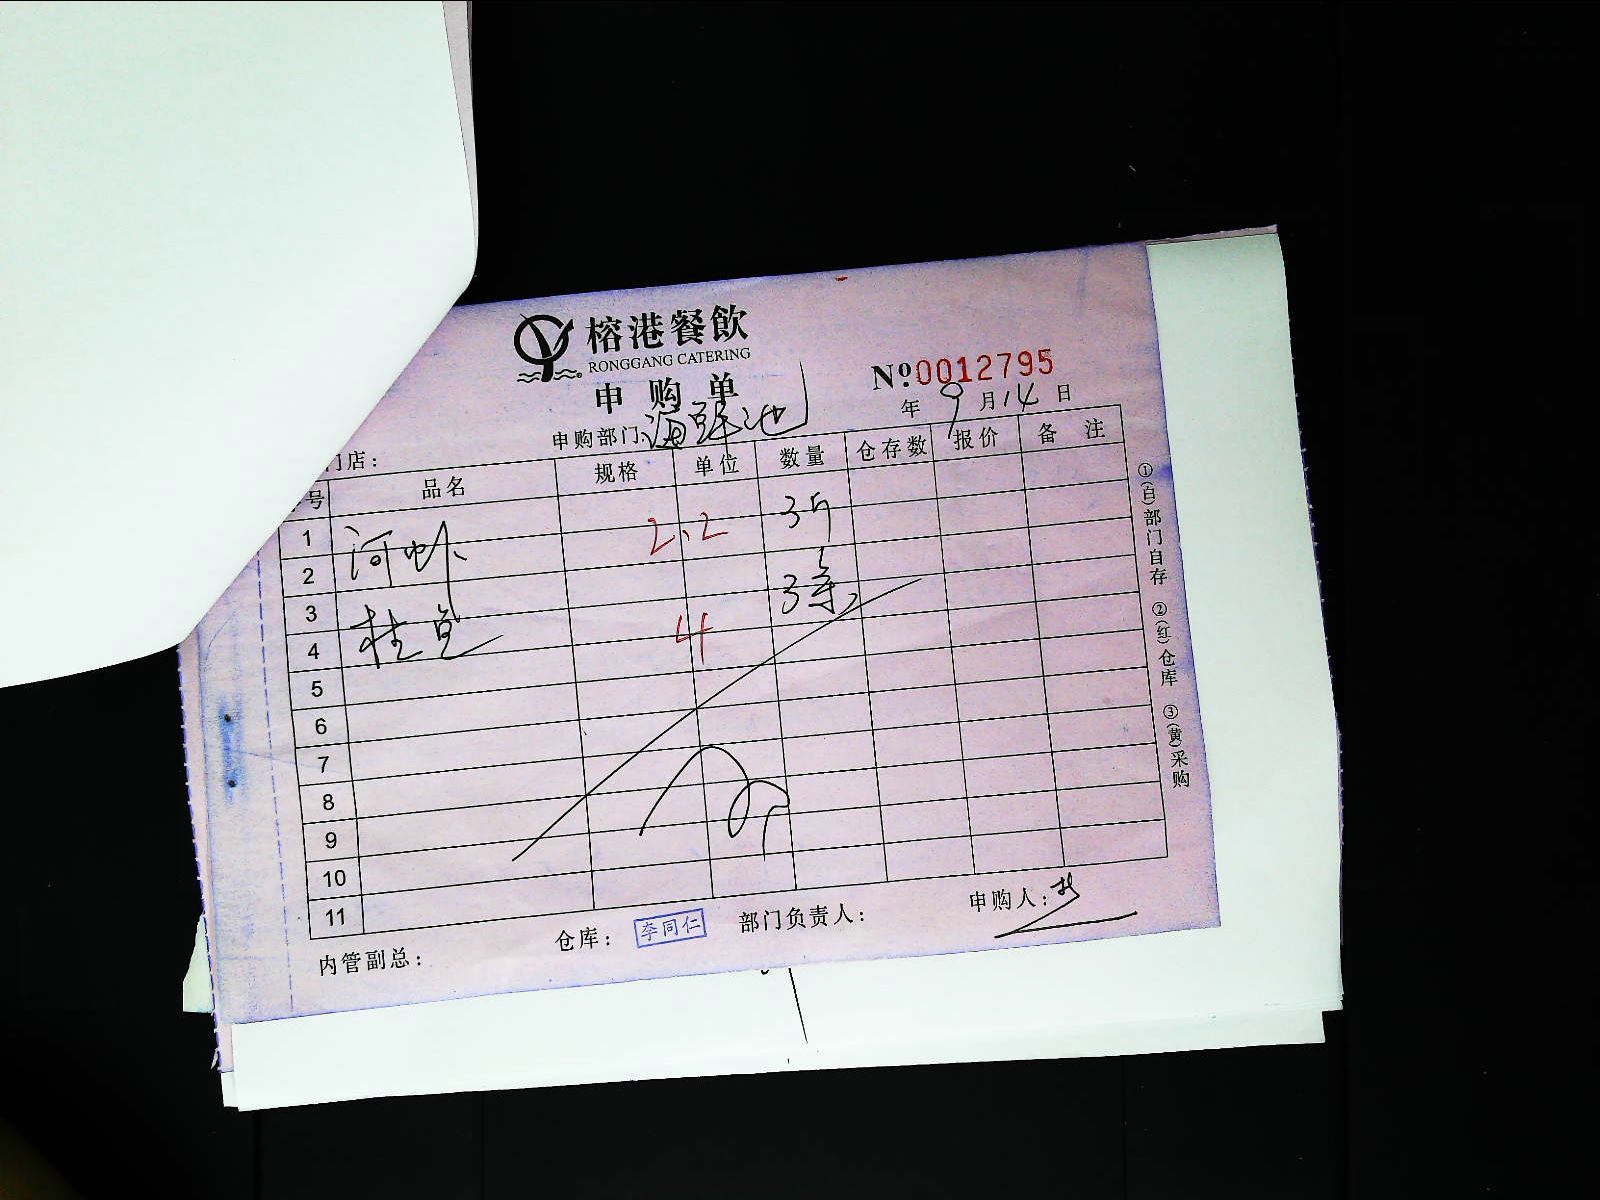 榕港餐飲
RONGGANG CATERING
申购单
№0012795
年 9 月 14 日
门店：
申购部门：海鲜池
号 品名 规格 单位 数量 仓存数 报价 备注
1 河虾 2.2 3斤
2
3 桂鱼 4 3条
4
5
6
7
8
9
10
11
内管副总：
仓库： 李同仁
部门负责人：
申购人：
①(白)部门自存 ②(红)仓库 ③(黄)采购